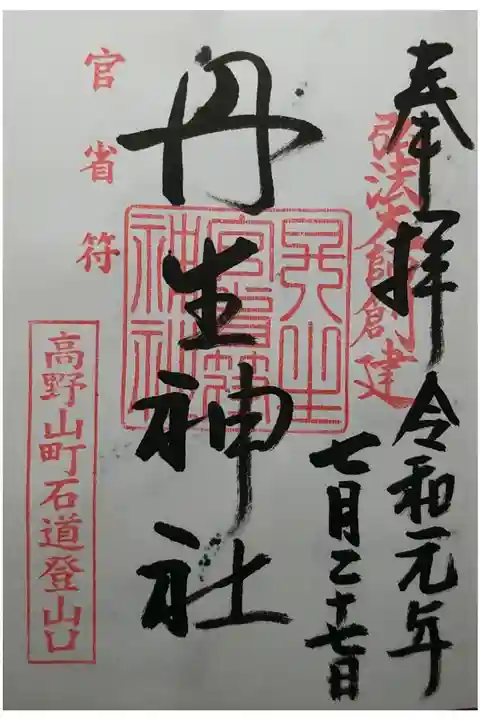 奉拝
弘法大師創建
令和元年
七月二十七日
丹生神社
丹生
官省符
神社
官省符
高野山町石道登山口